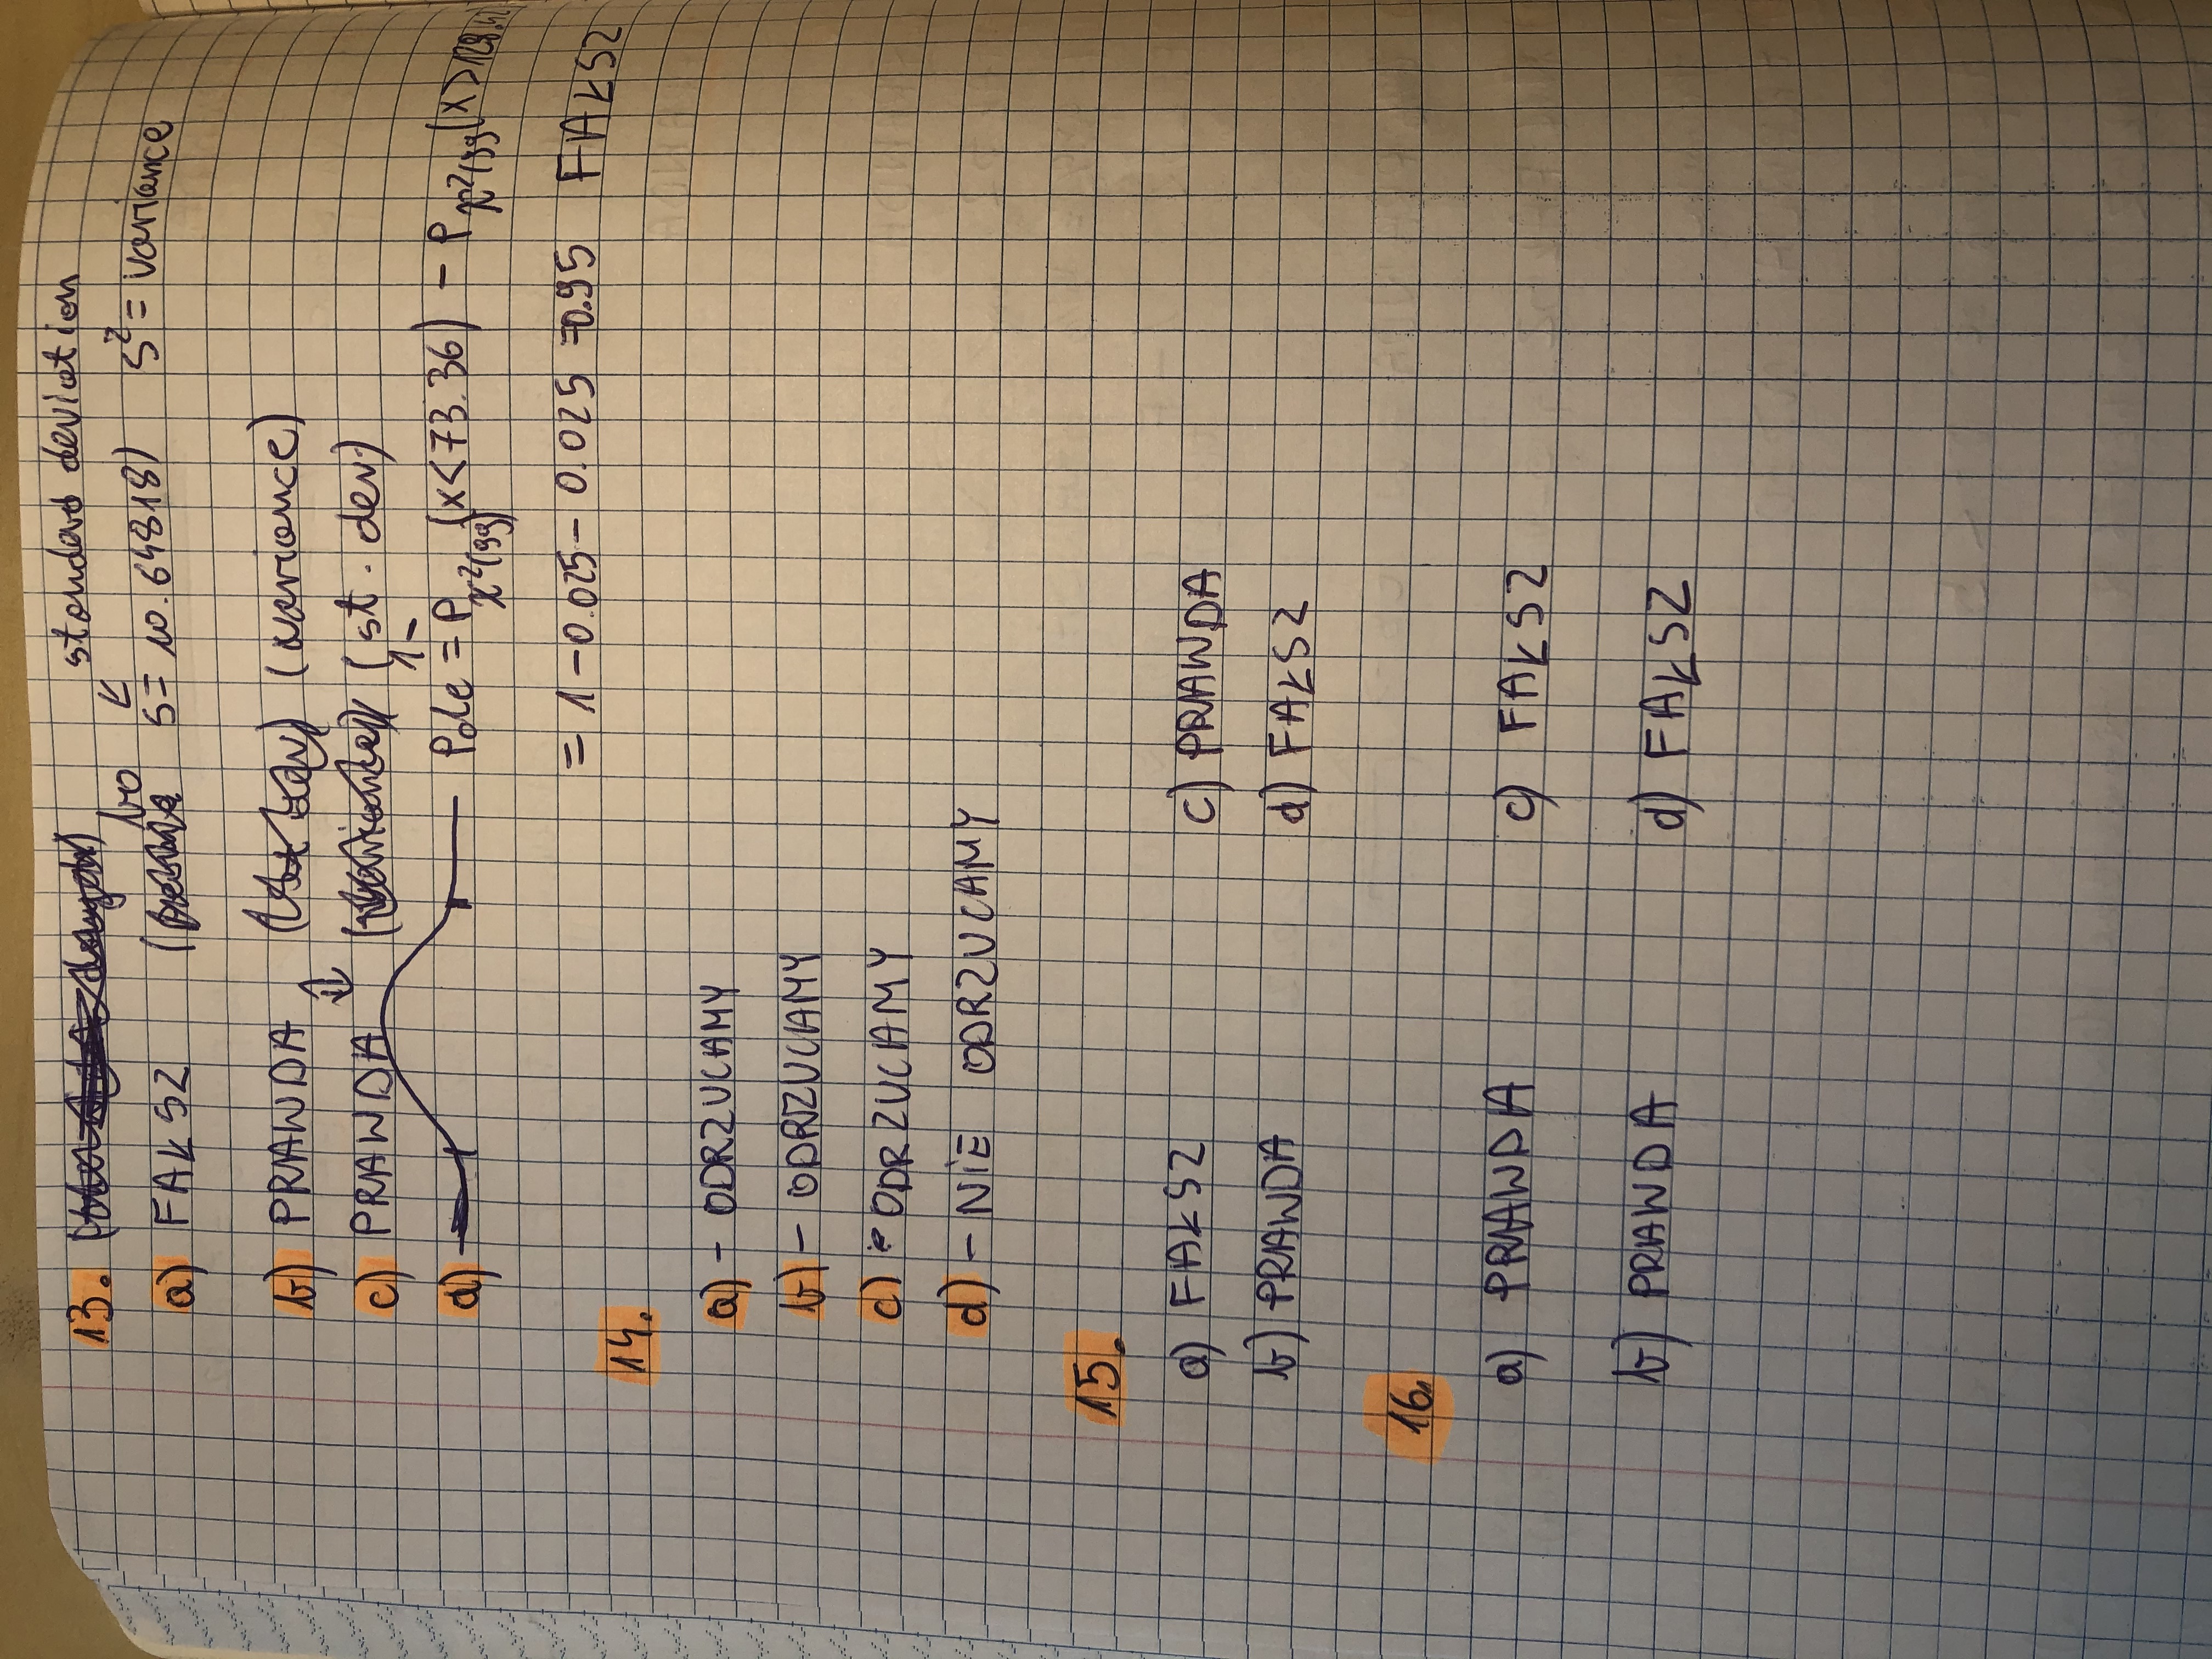 13. standard deviation
a) FAŁSZ (bo s = 10.64818) s² = variance
b) PRAWDA (variance)
c) PRAWDA (st. dev.)
d) Pole = 1- P χ²(99) (x < 73.36) - P χ²(99) (x > 128.42)
= 1 - 0.025 - 0.025 = 0.95 FAŁSZ
14.
a) - ODRZUCAMY
b) - ODRZUCAMY
c) - ODRZUCAMY
d) - NiE ODRZUCAMY
15.
a) FAŁSZ c) PRAWDA
b) PRAWDA d) FAŁSZ
16.
a) PRAWDA c) FAŁSZ
b) PRAWDA d) FAŁSZ